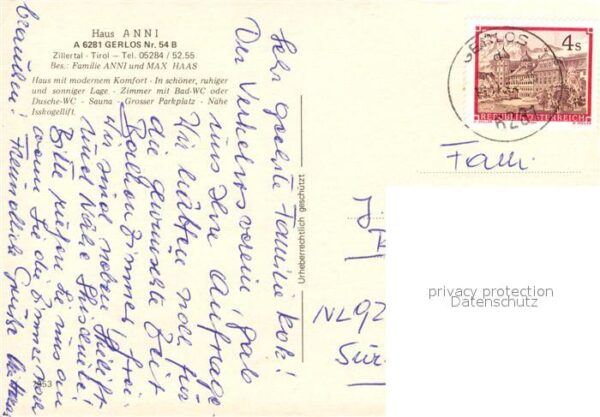 Haus ANNI
A 6281 GERLOS Nr. 54 B
Zillertal - Tirol — Tel. 05284 / 52.55
Bes.: Familie ANNI und MAX HAAS
Haus mit modernem Komfort - In schöner, ruhiger
und sonniger Lage - Zimmer mit Bad-WC oder
Dusche-WC - Sauna - Grosser Parkplatz - Nähe
Isskogellift.
Sehr geehrte Familie Kok!
Der Verkehrsverein gab
uns Ihre Anfrage.
Wir hätten noch für
die gewünschte Zeit
Balkonzimmer frei.
Wir sind neben Skilift
und Nähe
Bitte rufen Sie uns an
wenn Sie die Zimmer noch
brauchen!
Freundliche Grüße
Urheberrechtlich geschützt
GERLOS
4s
REPUBLIK ÖSTERREICH
Fam.
NL92
privacy protection
Datenschutz